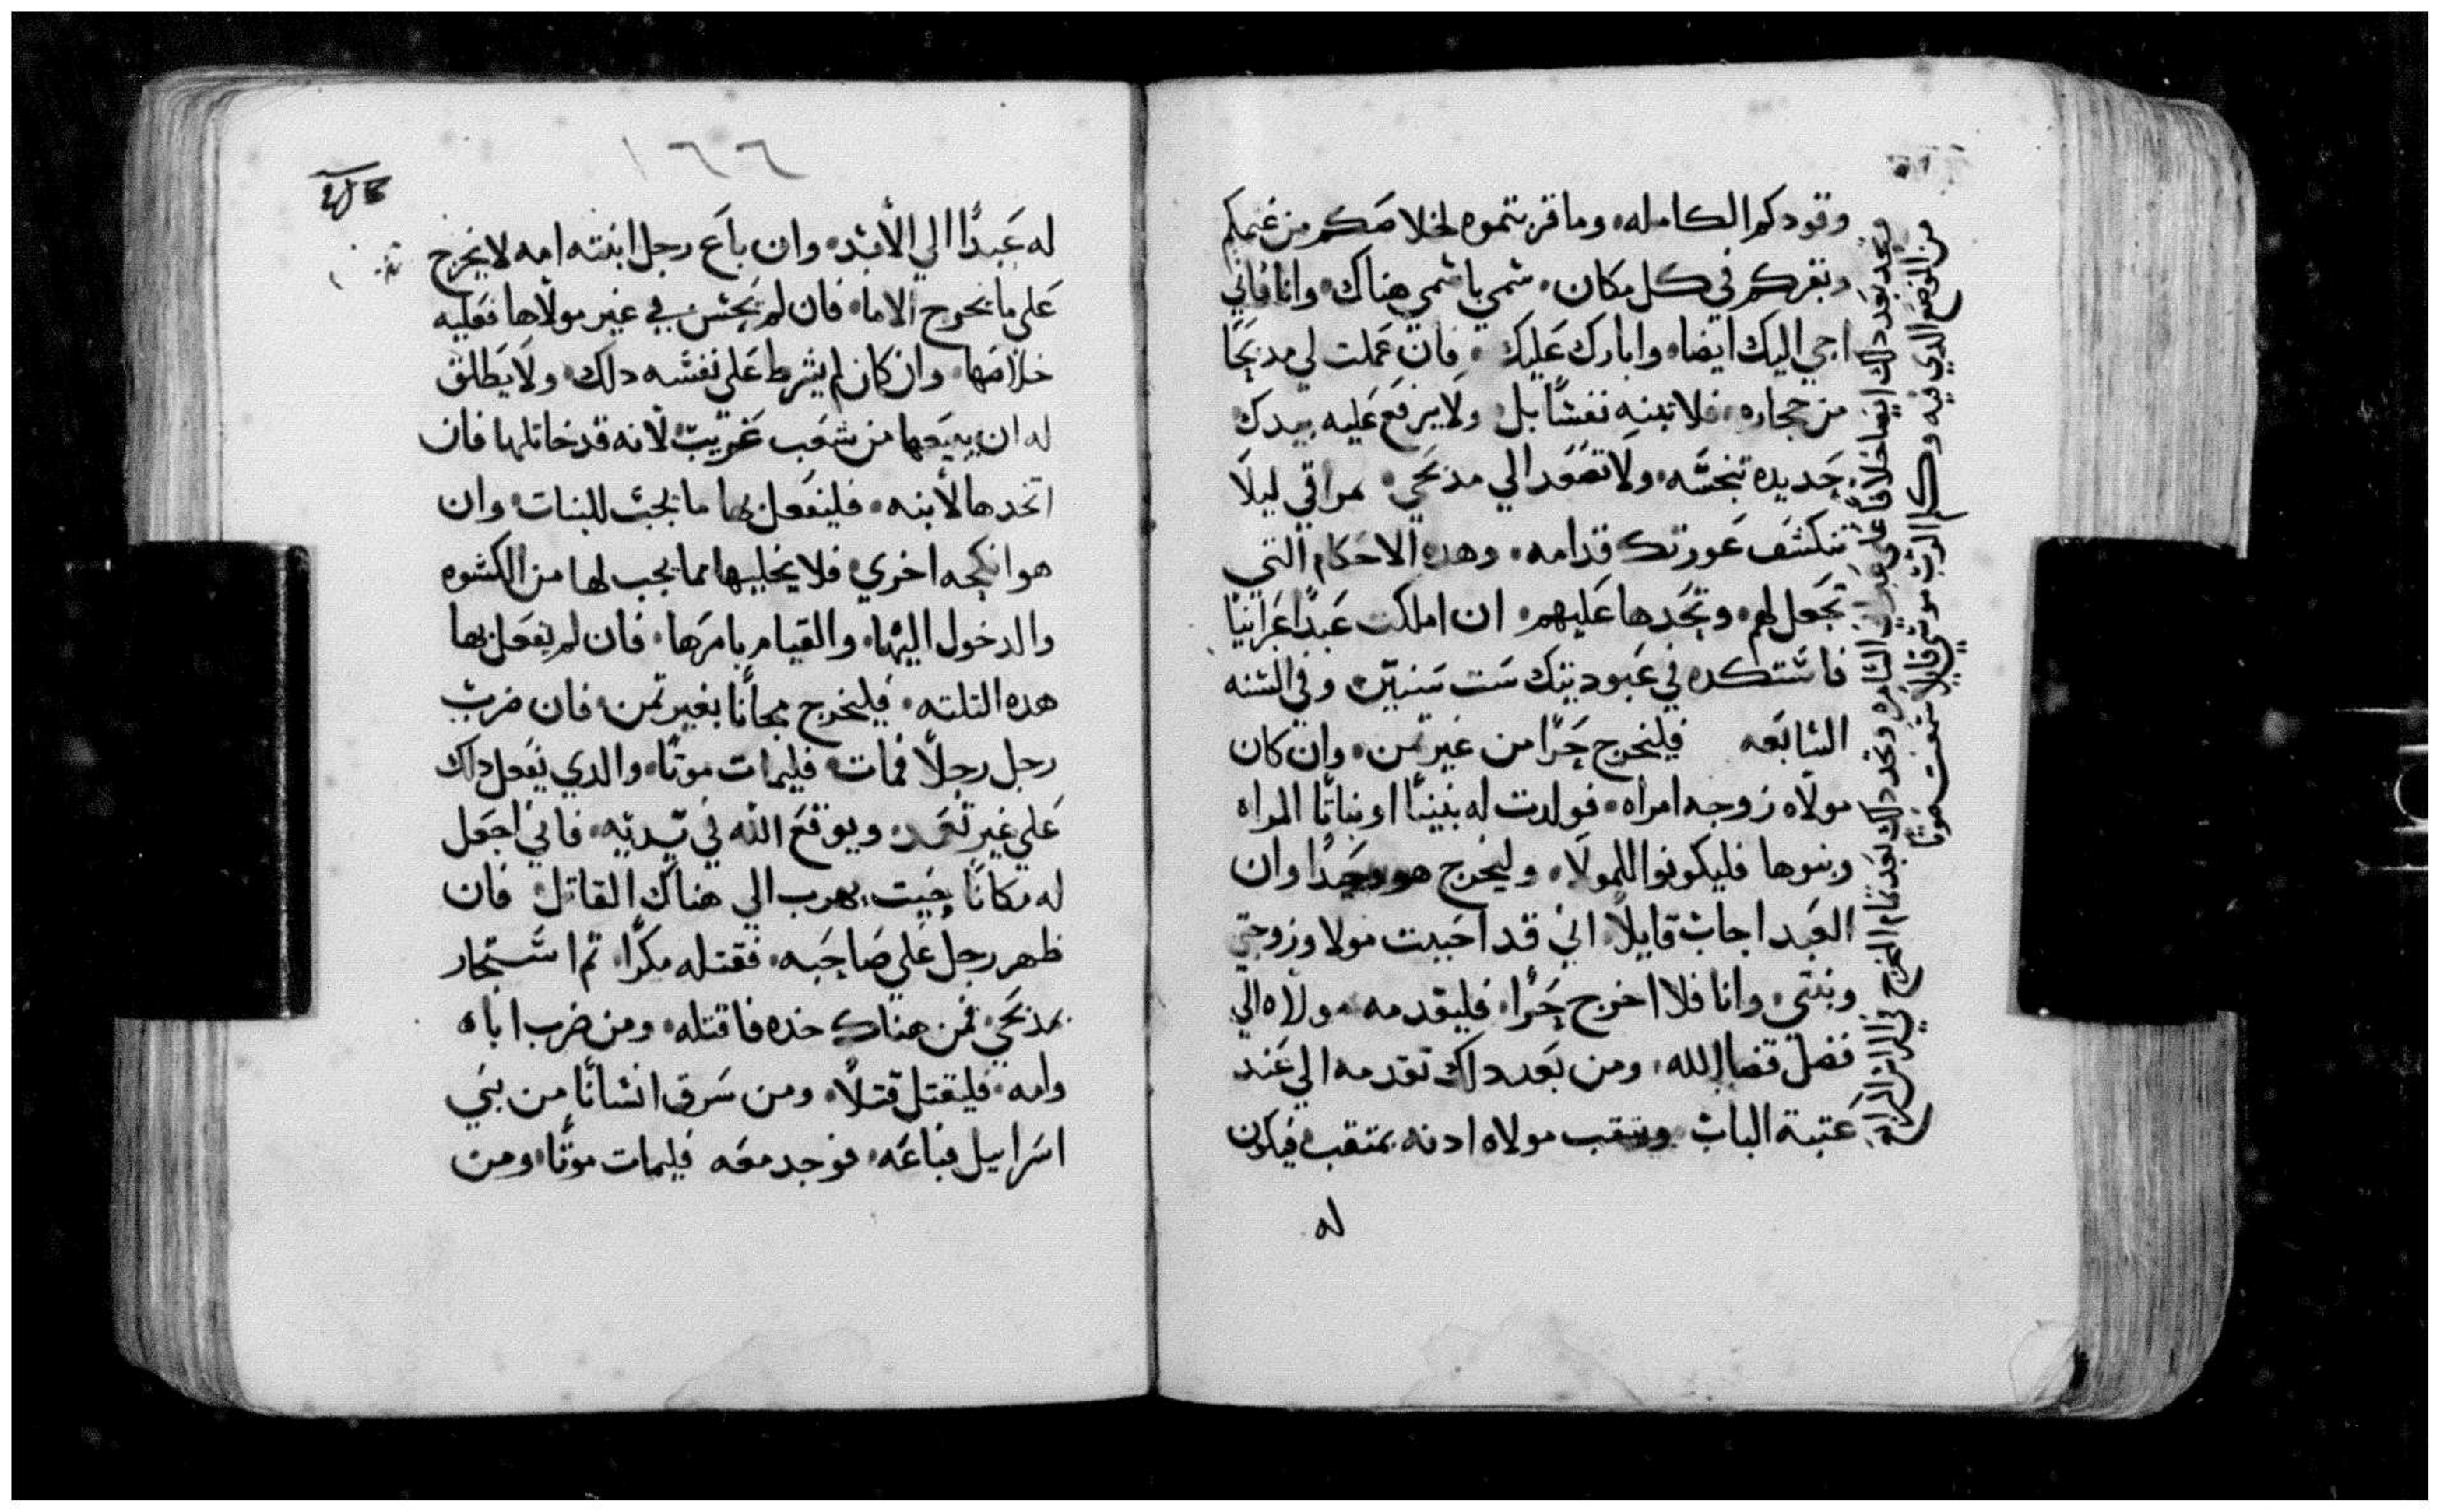 وقودكم الكامله وما قربتموه لخلاصكم من غنمكم
وبقركم في كل مكان سمي باسمي هناك وانا فاني
اجي اليك ايضا وابارك عليك فان عملت لي مدبحا
من حجاره فلا تبنه نفشا بل ولا يرفع عليه بيدك
حديده تنجسه ولا تصعد الي مدبحي بمراقي ليلا
تنكشف عورتك قدامه وهده الاحكام التي
تجعل لهم وتحدها عليهم ان املكت عبدا عبرانيا
فاستكده في عبوديتك ست سنين وفي السنه
السابعه فليخرج حرا من غير تمن وان كان
مولاه زوجه امراه فولدت له بنينا او بناتا المراه
وبنوها فليكونوا للمولا وليخرج هو وحدا وان
العبد اجاب قايلا اني قد احببت مولا وزوجتي
وبنتي وانا فلا اخرج حرا فليقدمه مولاه الي
فضل قضا الله ومن بعد دلك تقدمه الي عند
عتبة الباب ويتقب مولاه ادنه بمتقب فيكون
له
وبعد دلك ايضا خلافا علي عبراني السامره وتجد دلك بعد تمام المخرج في التراث
من الموضع الدي فيه وكلم الرب موسي قايلا سمعت صوتا
١٦٦
له عبدا الي الابد وان باع رجل ابنته امه لا يخرج
علي ما يخرج الاما فان لم يحسن في غير مولاها فعليه
خلاصها وان كان لم يشرط علي نفسه دلك ولا يطلق
له ان يبيعها من شعب غريب لانه قد خاتلها فان
اتخدها لابنه فليفعل بها ما يجب للبنات وان
هو انكحه اخري فلا يخليها مما يجب لها من الكسوه
والدخول اليها والقيام بامرها فان لم يفعل بها
هده التلته فليخرج مجانا بغير تمن فان ضرب
رجل رجلا فمات فليمات موتا والدي يفعل داك
علي غير تعمد ويوقع الله في يديه فاني اجعل
له مكانا حيت يهرب الي هناك القاتل فان
ظهر رجل علي صاحبه فقتله مكرا تم استجار
بمدبحي فمن هناك خده فاقتله ومن ضرب اباه
وامه فليقتل قتلا ومن سرق انسانا من بني
اسراييل فباعه فوجد معه فليمات موتا ومن